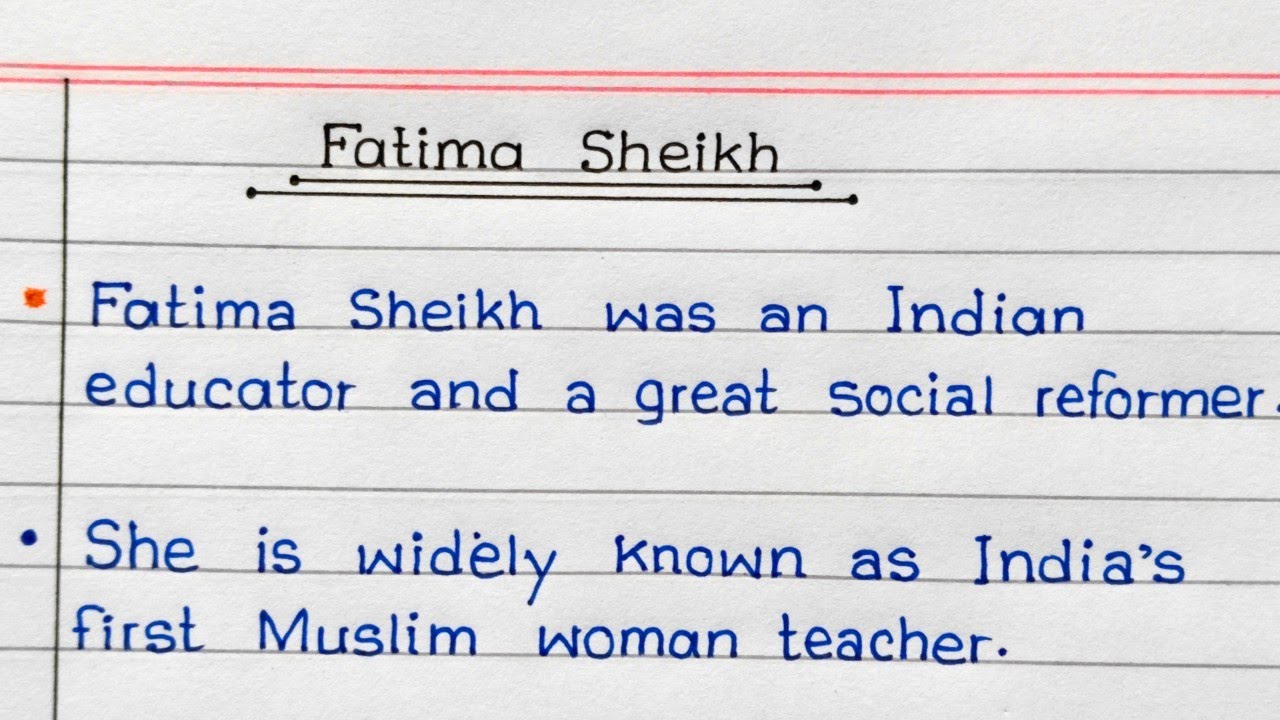 Fatima Sheikh
• Fatima Sheikh was an Indian
educator and a great social reformer.
• She is widely known as India's
first Muslim woman teacher.